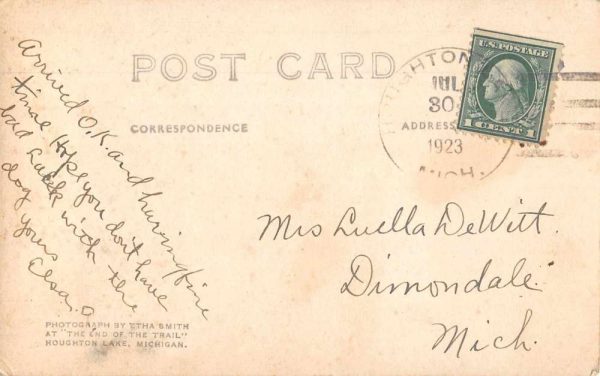 POST CARD
CORRESPONDENCE
ADDRESS
HOUGHTON
JUL
30
1923
MICH.
U.S. POSTAGE
1 CENT 1
Arrived O.K. and having fine
time Hope you don't have
bad Luck with the
dog yours
Elsa.
Mrs Luella DeWitt.
Dimondale
Mich.
PHOTOGRAPH BY ETHA SMITH
AT "THE END OF THE TRAIL"
HOUGHTON LAKE, MICHIGAN.